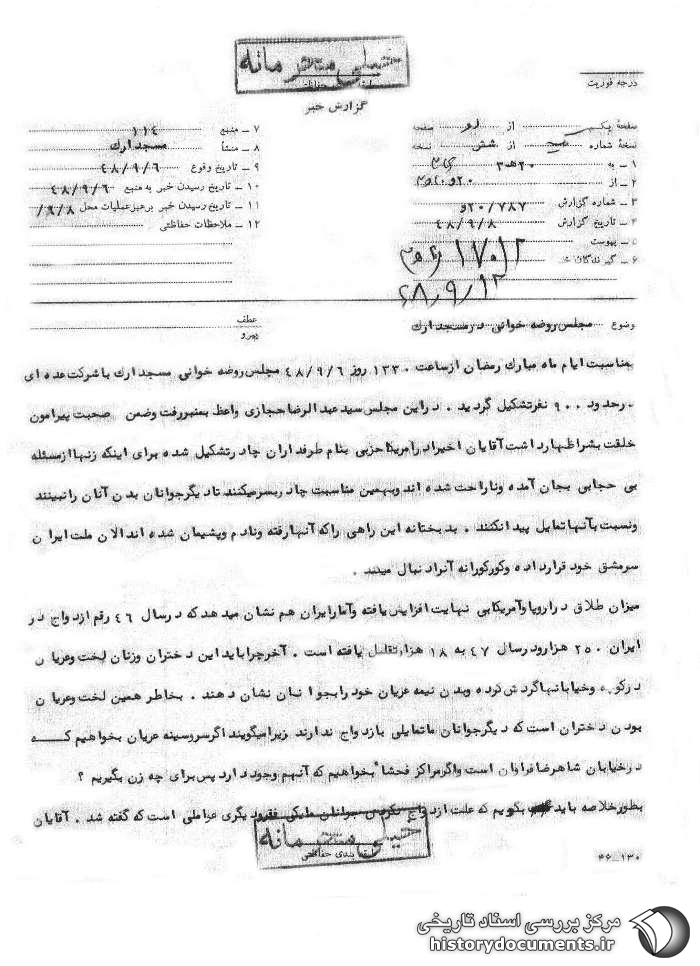 خیلی محرمانه
طبقه بندی حفاظتی
درجه فوریت
گزارش خبر
صفحهٔ یکم از دو صفحه
نسخهٔ شماره از شش نسخه
۱ ــ به ۲۰ هـ ۳
۲ ــ از
۳ ــ شماره گزارش ۲۰/۷۸۷
۴ ــ تاریخ گزارش ۴۸/۹/۸
۵ ــ پیوست
۶ ــ گیرندگان
۴۸/۹/۱۲
۷ ــ منبع ۱۱۴
۸ ــ منشأ مسجد ارک
۹ ــ تاریخ وقوع ۴۸/۹/۶
۱۰ ــ تاریخ رسیدن خبر به منبع ۴۸/۹/۶
۱۱ ــ تاریخ رسیدن خبر برهبر عملیات محل ۹/۸/
۱۲ ــ ملاحظات حفاظتی
موضوع مجلس روضه خوانی در مسجد ارک
عطف
پیرو
بمناسبت ایام ماه مبارک رمضان از ساعت ۱۳۳۰ روز ۴۸/۹/۶ مجلس روضه خوانی مسجد ارک با شرکت عده ای
در حدود ۹۰۰ نفر تشکیل گردید . در این مجلس سید عبدالرضا حجازی واعظ بمنبر رفت وضمن صحبت پیرامون
خلقت بشر اظهار داشت آقایان اخیرا در امریکا حزبی بنام طرفداران چادر تشکیل شده برای اینکه زنها از مسئله
بی حجابی بجان آمده و ناراحت شده اند وبهمین مناسبت چادر بسر میکنند تا دیگر جوانان بدن آنان را نبینند
و نسبت بآنها تمایل پیدا نکنند . بدبختانه این راهی را که آنها رفته و نادم و پشیمان شده اند الان ملت ایران
سرمشق خود قرار داده و کورکورانه آنرا دنبال میکند .
میزان طلاق در اروپا و آمریکا بی نهایت افزایش یافته و آمار ایران هم نشان میدهد که در سال ۴۶ رقم ازدواج در
ایران ۲۵۰ هزار و در سال ۴۷ به ۱۸ هزار تقلیل یافته است . آخر چرا باید این دختران و زنان لخت و عریان
در کوچه و خیابانها گردش کرده و بدن نیمه عریان خود را بجوانان نشان دهند . بخاطر همین لخت و عریان
بودن دختران است که دیگر جوانان ما تمایلی بازدواج ندارند زیرا میگویند اگر سر و سینه عریان بخواهیم کـــه
در خیابان شاهرضا فراوان است و اگر مراکز فحشاء بخواهیم که آنهم وجود دارد پس برای چه زن بگیریم ؟
بطور خلاصه باید بگویم که علت ازدواج نکردن جوانان دیگری عواملی است که گفته شد . آقایان
خیلی محرمانه
طبقه بندی حفاظتی
۴۶ــ۱۳۰
مرکز بررسی اسناد تاریخی
historydocuments.ir